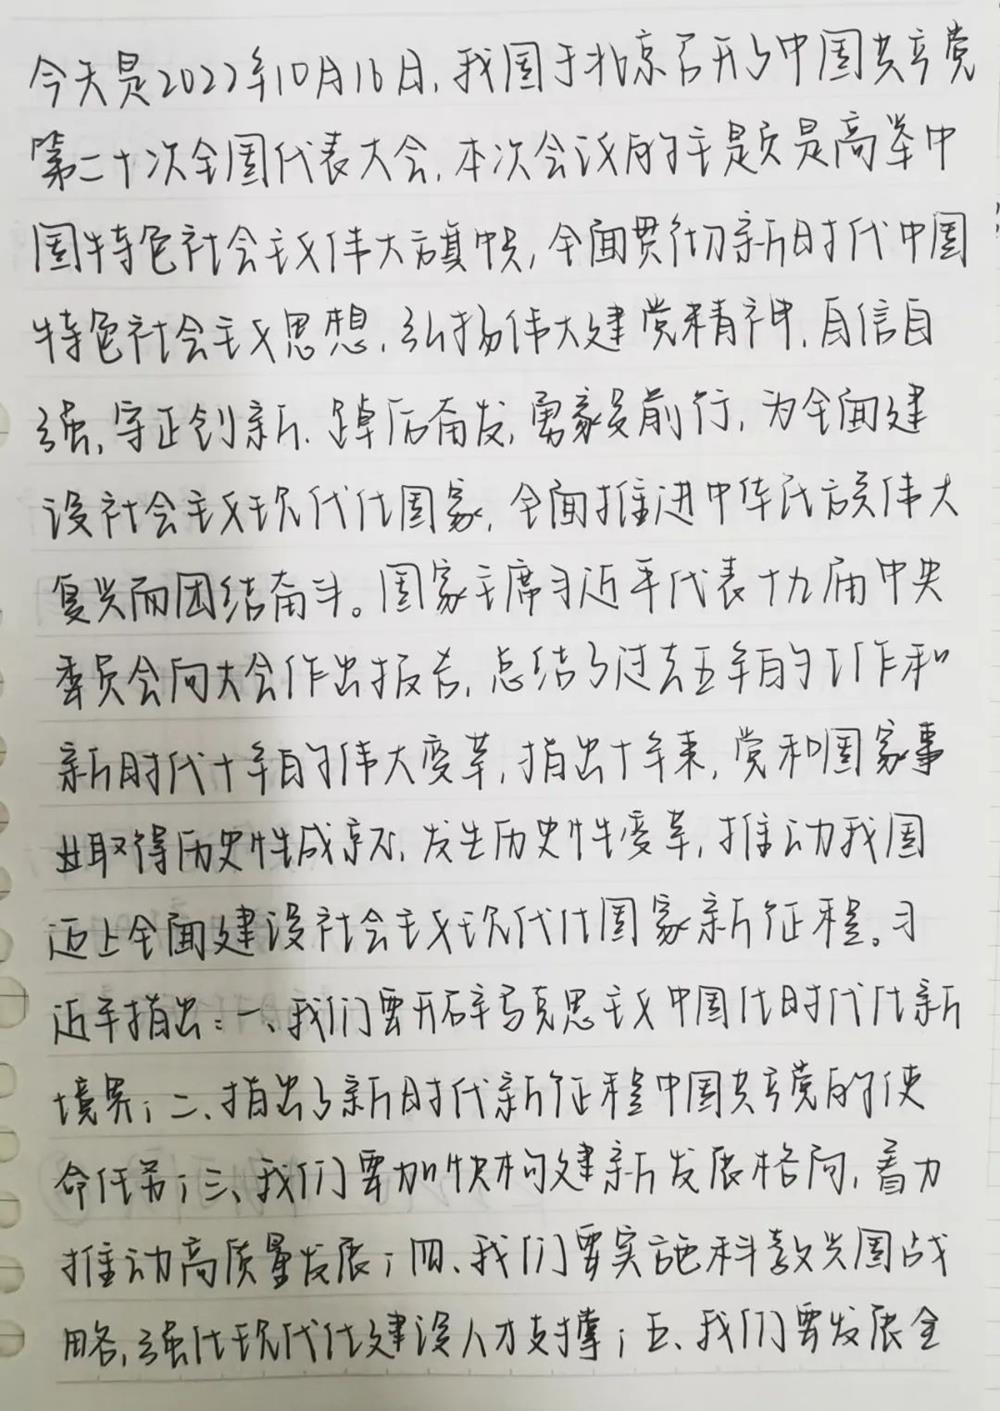 今天是2022年10月16日,我国于北京召开了中国共产党
第二十次全国代表大会,本次会议的主题是高举中
国特色社会主义伟大旗帜,全面贯彻新时代中国
特色社会主义思想,弘扬伟大建党精神,自信自
强,守正创新,踔厉奋发,勇毅前行,为全面建
设社会主义现代化国家,全面推进中华民族伟大
复兴而团结奋斗。国家主席习近平代表十九届中央
委员会向大会作出报告,总结了过去五年的工作和
新时代十年的伟大变革,指出十年来,党和国家事
业取得历史性成就,发生历史性变革,推动我国
迈上全面建设社会主义现代化国家新征程。习
近平指出:一、我们要开辟马克思主义中国化时代化新
境界;二、指出了新时代新征程中国共产党的使
命任务;三、我们要加快构建新发展格局,着力
推动高质量发展;四、我们要实施科教兴国战
略,强化现代化建设人才支撑;五、我们要发展全